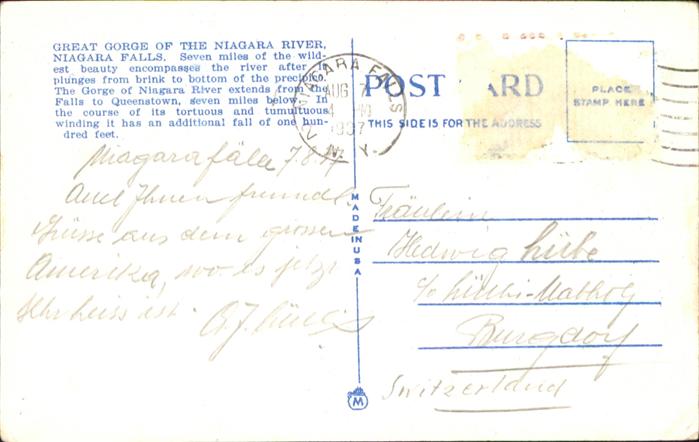 GREAT GORGE OF THE NIAGARA RIVER,
NIAGARA FALLS. Seven miles of the wild-
est beauty encompasses the river after it
plunges from brink to bottom of the precipice.
The Gorge of Niagara River extends from the
Falls to Queenstown, seven miles below. In
the course of its tortuous and tumultuous
winding it has an additional fall of one hun-
dred feet.
NIAGARA FALLS
AUG 7
1937
N. Y.
POST CARD
THIS SIDE IS FOR THE ADDRESS
PLACE
STAMP HERE
Niagarafälle 7.8.37
Auch Ihnen freundl.
Grüsse aus dem grossen
Amerika, wo es jetzt
sehr heiss ist.
MADE IN USA
Fräulein
Hedwig
c/o Lüthi-
Burgdorf
Switzerland
M